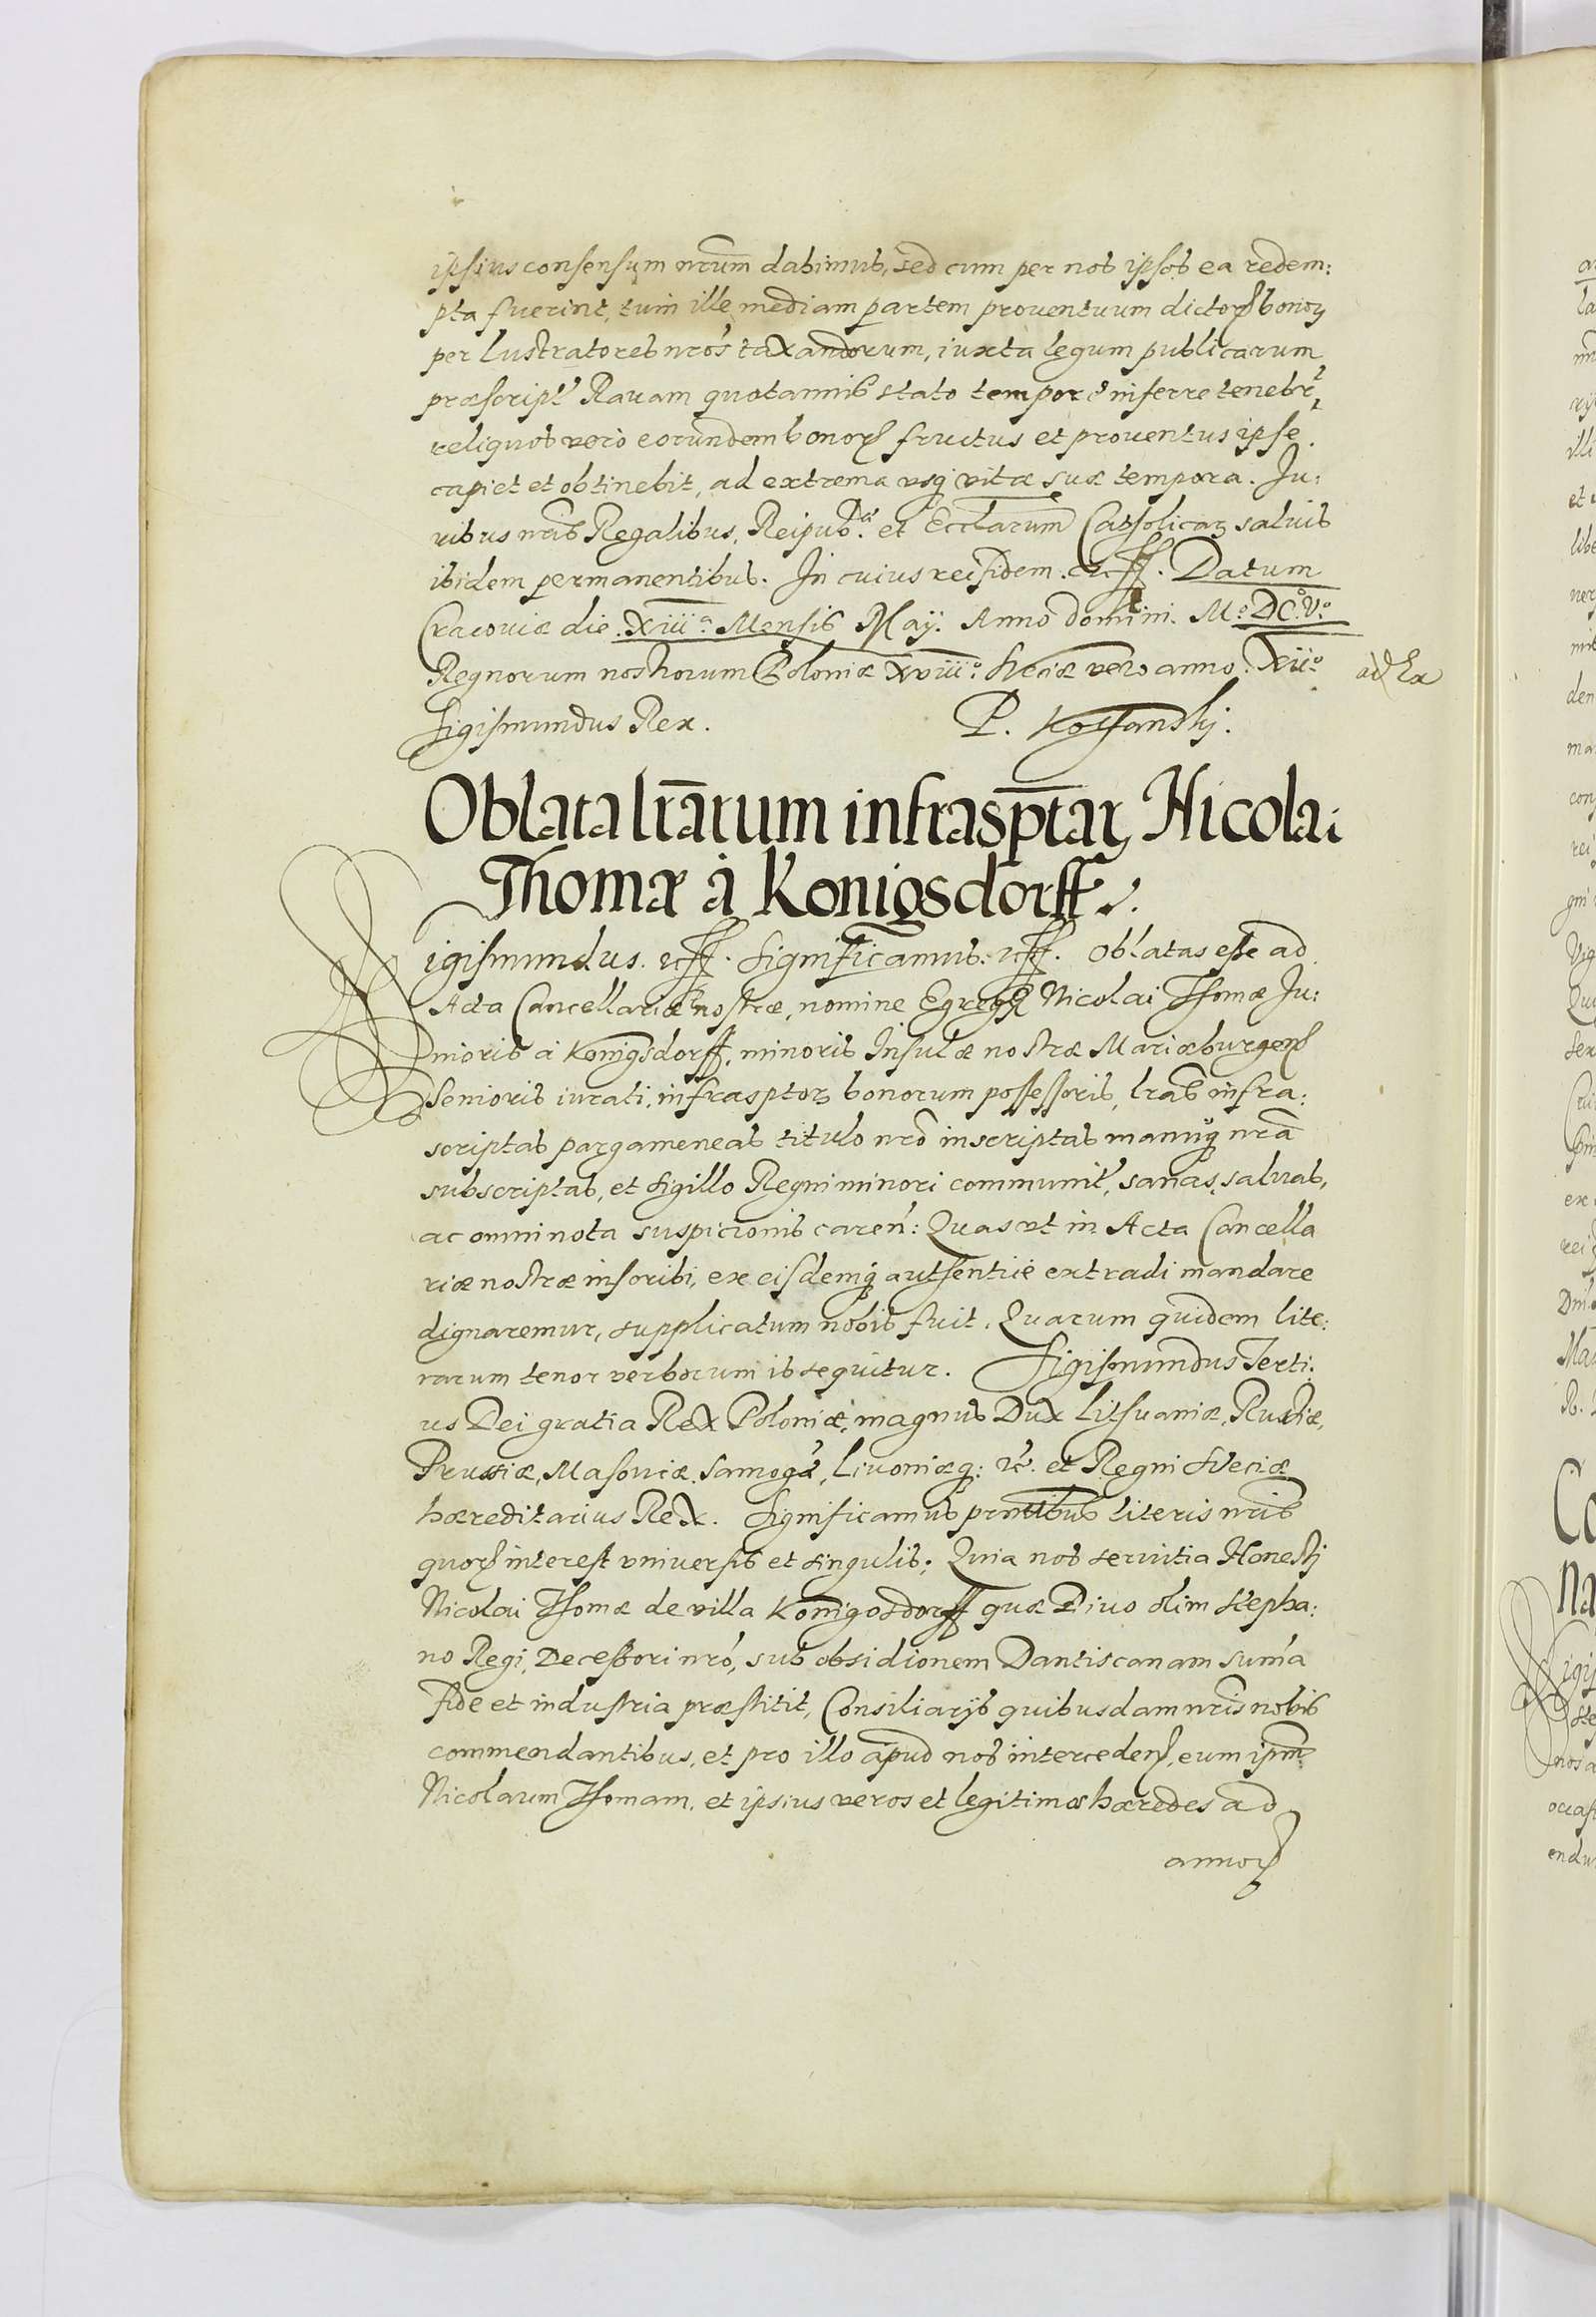 ipsius consensum nrum dabimus, sed cum per nos ipsos ea redem:
pta fuerint, tum ille mediam partem proventuum dictorꝝ bonorꝝ
per Lustratores nros taxandorum, iuxta legum publicarum
præscript' Ravam quotannis stato tempore inferre tenebr̃,
reliquos vero eorundem bonorꝝ fructus et proventus ipse
capiet et obtinebit, ad extrema usqꝫ vitæ suæ tempora. Ju:
ribus nris Regalibus, Reipub:cæ et Ecclarum Catholicarꝝ salvis
ibidem permanentibus. In cuius rei fidem. etc. Datum
Cracoviæ die XIIIa Mensis Maÿ. Anno Domini. Mo. DCo. Vo.
Regnorum nostrorum Poloniæ XVIIIo. Sveciæ vero anno. XIIo
Sigismundus Rex. P. Kossanskj.
Oblata lrarum infrasptarꝝ Nicolai
Thomæ à Konigsdorff.
Sigismundus. etc. Significamus. etc. Oblatas esse ad
Acta Cancellariæ nostræ, nomine Egregÿ Nicolai Thomæ Ju:
nioris à Konigsdorff, minoris Insulæ nostræ Mariæburgenꝭ
Senioris iurati, infrasptorꝝ bonorum possessoris, lras infra:
scriptas pargameneas titulo nro inscriptas manuqꝫ nra
subscriptas, et sigillo Regni minori communit', sanas, salvas,
ac omni nota suspicionis caren': Quas ut in Acta Cancella
riæ nostræ inscribi, ex eisdemqꝫ authentice extradi mandare
dignaremur, supplicatum nobis fuit. Quarum quidem lite:
rarum tenor verborum is sequitur. Sigismundus Terti:
us Dei gratia Rex Poloniæ, magnus Dux Lithuaniæ, Russiæ,
Prussiæ, Masoviæ, Samogæ, Livoniæqꝫ: etc. et Regni Sveciæ
hæreditarius Rex. Significamus prntibus literis nris
quorꝝ interest universis et singulis; Quia nos servitia Honestj
Nicolai Thomæ de villa Konigosdorff quæ Divo olim Stepha:
no Regi, Decessori nro, sub obsidionem Dantiscanam suma
fide et industria præstitit, Consiliarÿs quibusdam nris nobis
commendantibus, et pro illo apud nos intercedenꝭ, eum ipm
Nicolaum Thomam, et ipsius veros et legitimos hæredes ad
annorꝝ